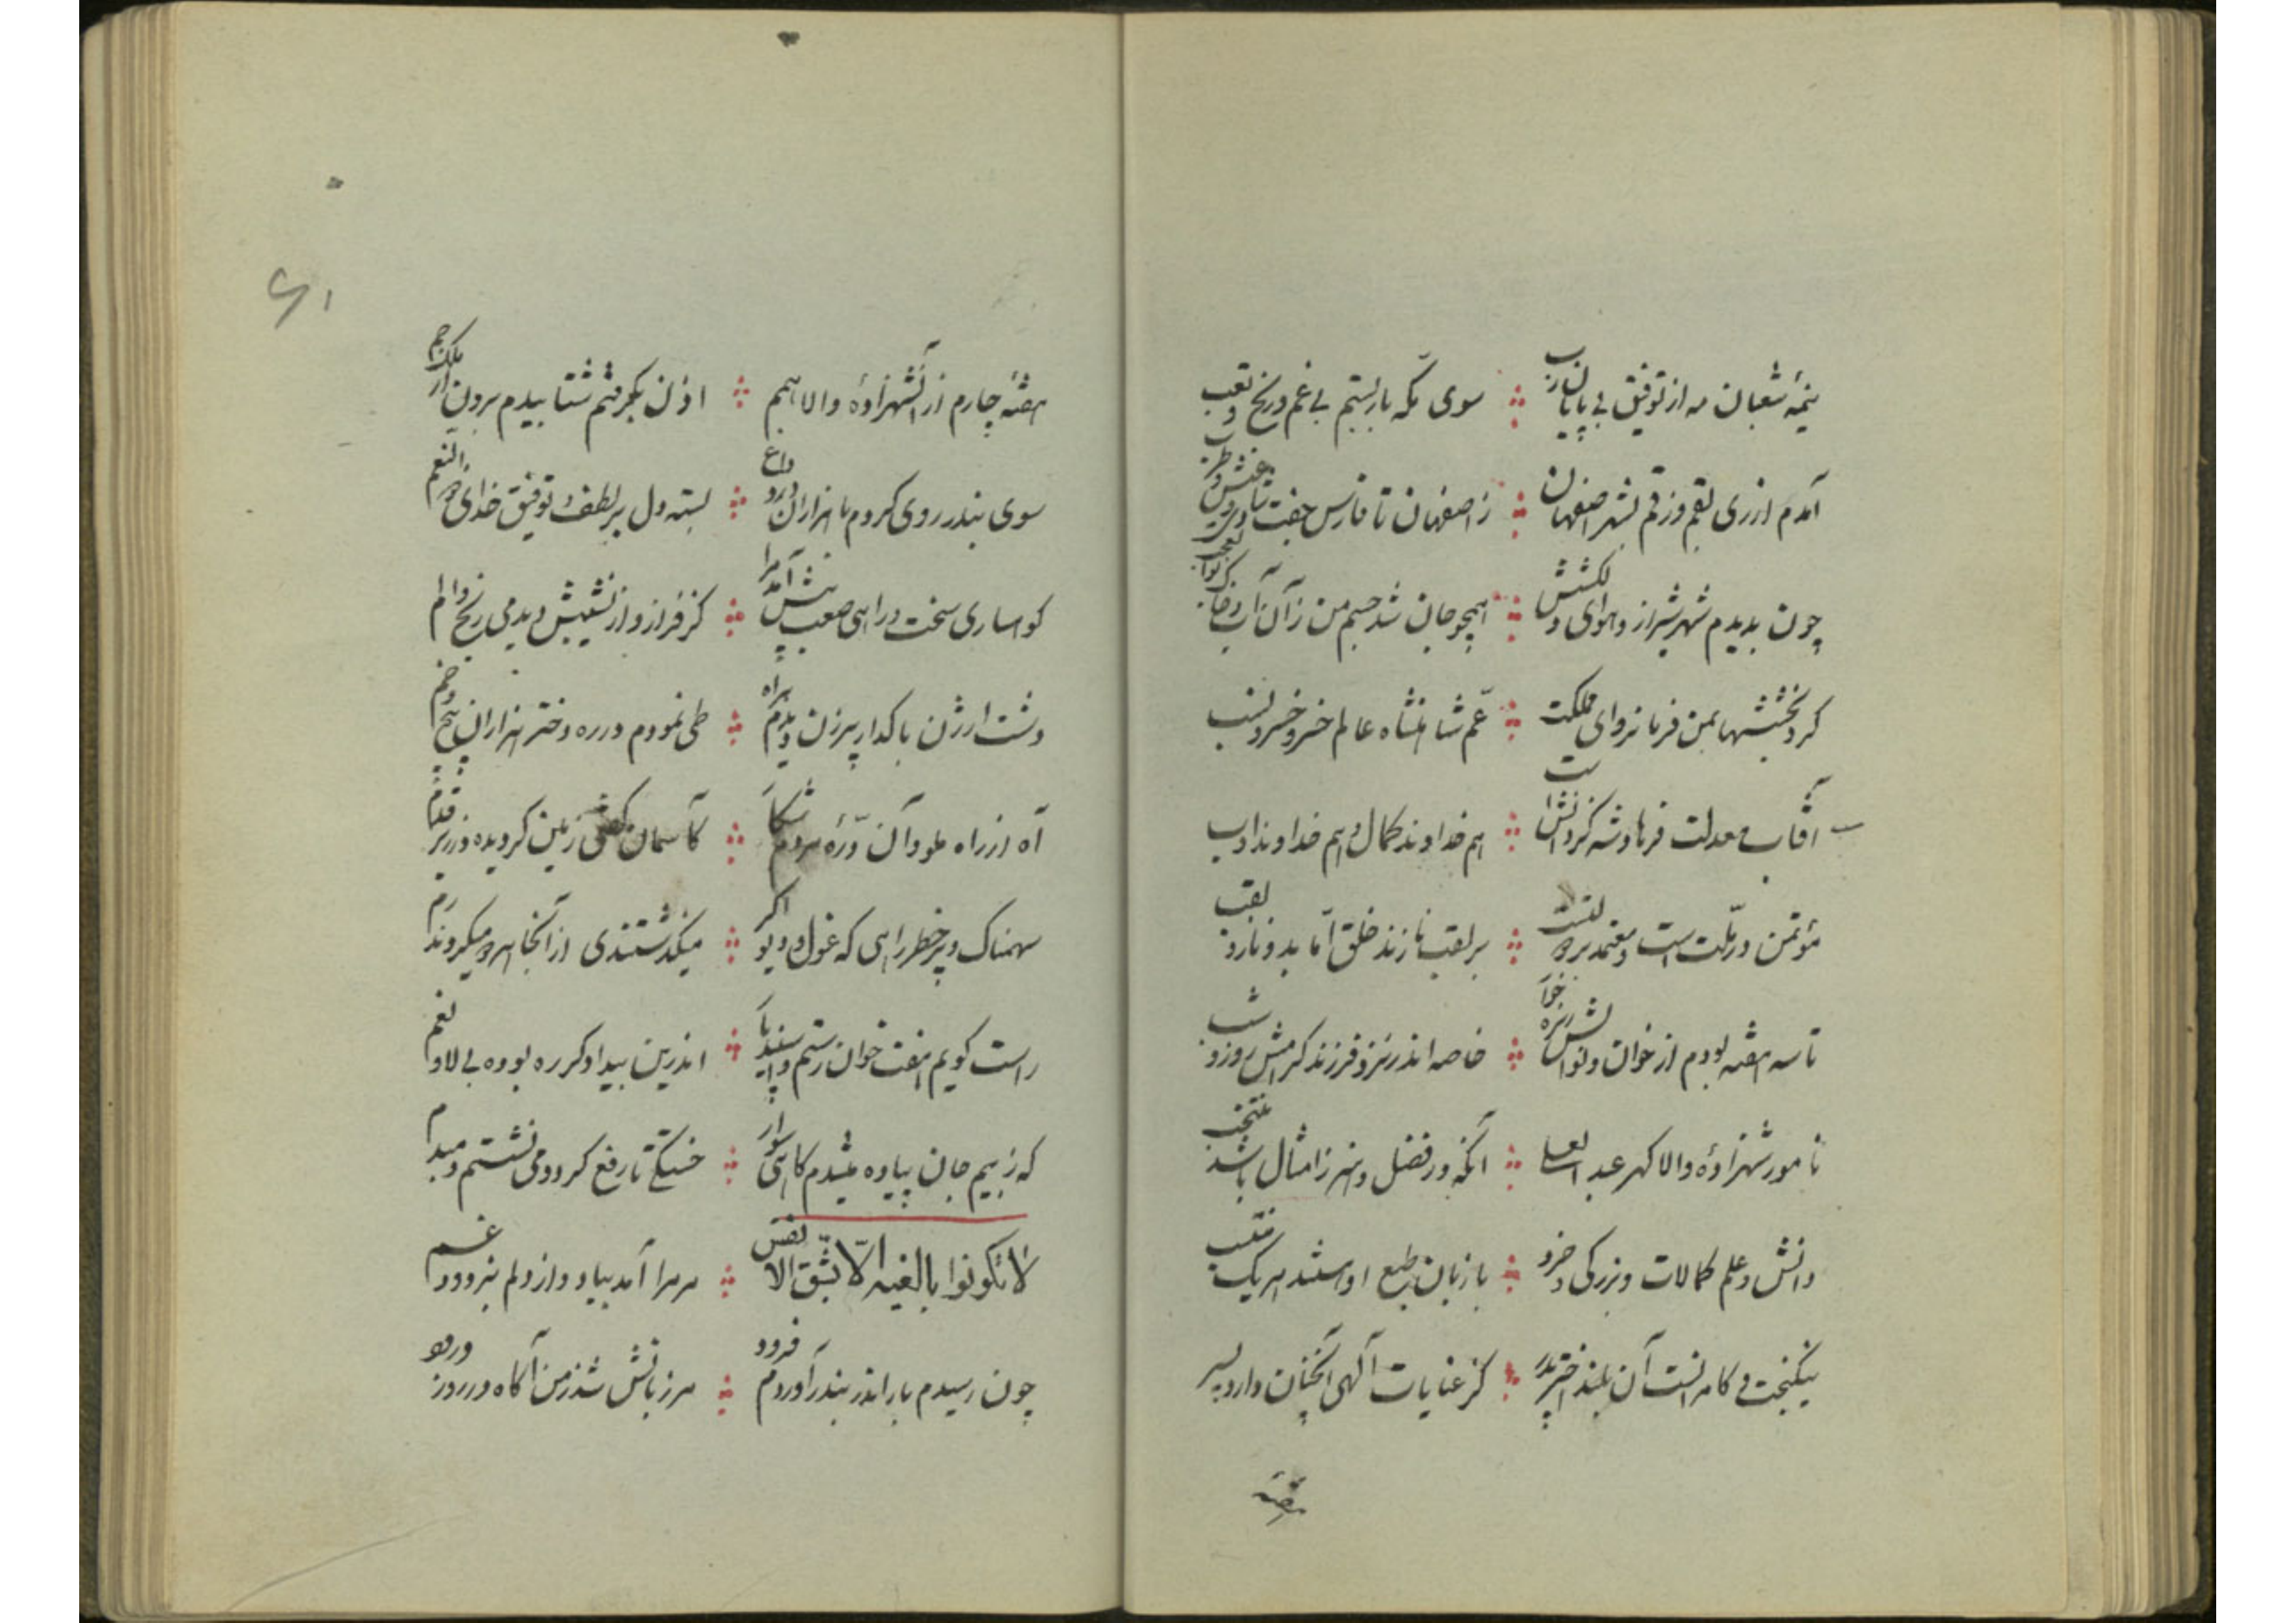 نیمهٔ شعبان مه از توفیق بی پایان رب سوی مکه بار بستم بی غم و رنج و تعب
آمدم از ری بقم وز قم بشهر اصفهان ز اصفهان تا فارس جفت شادی و عیش و طرب
چون بدیدم شهر شیراز و هوای دلکشش همچو جان شد جسم من زان آب و خاک
کرد بخششها بمن فرمانروای مملکت عم شاهنشاه عالم خسرو خسرو نسب
آفتاب معدلت فرهاد شه کز دانش است هم خداوند کمال و هم خداوند ادب
مؤتمن در ملت است و معتمد بر دولت است بر لقب نازند خلق اما بدو نازد لقب
تا سه هفته بودم از خوان نوالش ریزه خوار خاصه اندر نزد فرزند گرامش روز و شب
نامور شهزادهٔ والا گهر عبد العلی آنکه در فضل و هنر ز امثال باشد منتخب
دانش و علم و کمالات و بزرگی و خرد با زبان طبع او استند هر یک
نیکبخت و کامرانست آن بلند اختر پدر کز عنایات الهی آنچنان دارد پسر
هفته
۶۱
هفتهٔ چارم از آن شهزادهٔ والا همم اذن بگرفتم شتابیدم برون از ملک جم
سوی بندر روی کردم با هزاران درد و داغ بسته دل بر لطف و توفیق خدای ذو النعم
کوهساری سخت و راهی صعب پیش آمد مرا کز فراز و از نشیبش دیدمی رنج و الم
دشت ارژن با کدار پیرزن دیدم براه طی نمودم در ره دختر هزاران پیچ و خم
آه از راه ملو و آن درهٔ کآسمان گفتی زمین گردیده در زیر قدم
سهمناک و پر خطر راهی که غول و دیو اگر میگذشتندی از آنجا هر دو میکردند رم
راست گویم هفت خوان رستم و اسفندیار اندرین بیداد گر ره بوده بی لا و نعم
که ز بیم جان پیاده میشدم گاهی سوار خستگی تا رفع گردد می نشستم دمبدم
لا تکونوا بالغیه الا بشق الانفس مر مرا آمد بیاد و از دلم بزدود غم
چون رسیدم بار اندر بندر آوردم فرود مرزبانش شد ز من آگاه در روز ورود